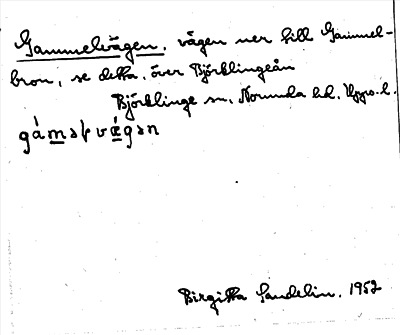 Gammelvägen, vägen ner till Gammel-
bron, se detta, över Björklingeån
Björklinge sn, Norunda hd, Upps. l.
gàmaɫvǽgən
Birgitta Sandelin. 1952